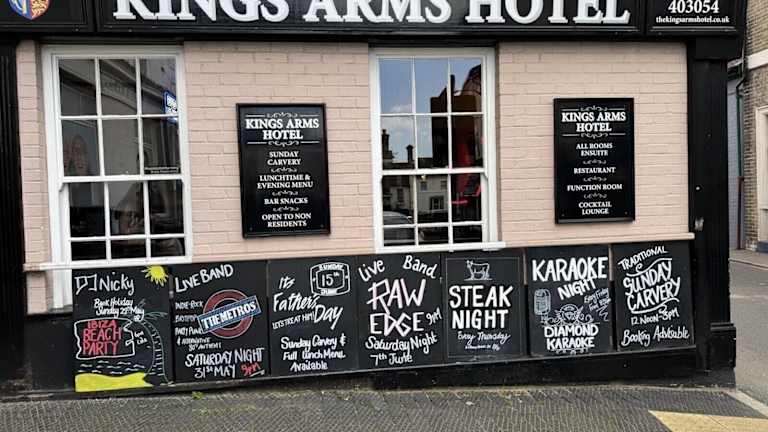 KINGS ARMS HOTEL
403054
thekingsarmshotel.co.uk
KINGS ARMS
HOTEL
SUNDAY
CARVERY
LUNCHTIME &
EVENING MENU
BAR SNACKS
OPEN TO NON
RESIDENTS
KINGS ARMS
HOTEL
ALL ROOMS
ENSUITE
RESTAURANT
FUNCTION ROOM
COCKTAIL
LOUNGE
DJ Nicky
Bank Holiday
Sunday 25th May
IBIZA
BEACH
PARTY
LIVE BAND
INDIE-ROCK
BRITPOP
PARTY PUNK
& ALTERNATIVE
ANTHEMS
THE METROS
SATURDAY NIGHT
31ST MAY 9PM
SUNDAY
15TH
JUNE
It's
Fathers
Day
LET'S TREAT HIM!
Sunday Carvery &
Full Lunch Menu
Available
Live Band
RAW
EDGE
9PM
Saturday Night
7th June
STEAK
NIGHT
Every Thursday
KARAOKE
NIGHT
Every Friday
9PM
with
DIAMOND
KARAOKE
TRADITIONAL
SUNDAY
CARVERY
12 NOON 3PM
Booking Advisable